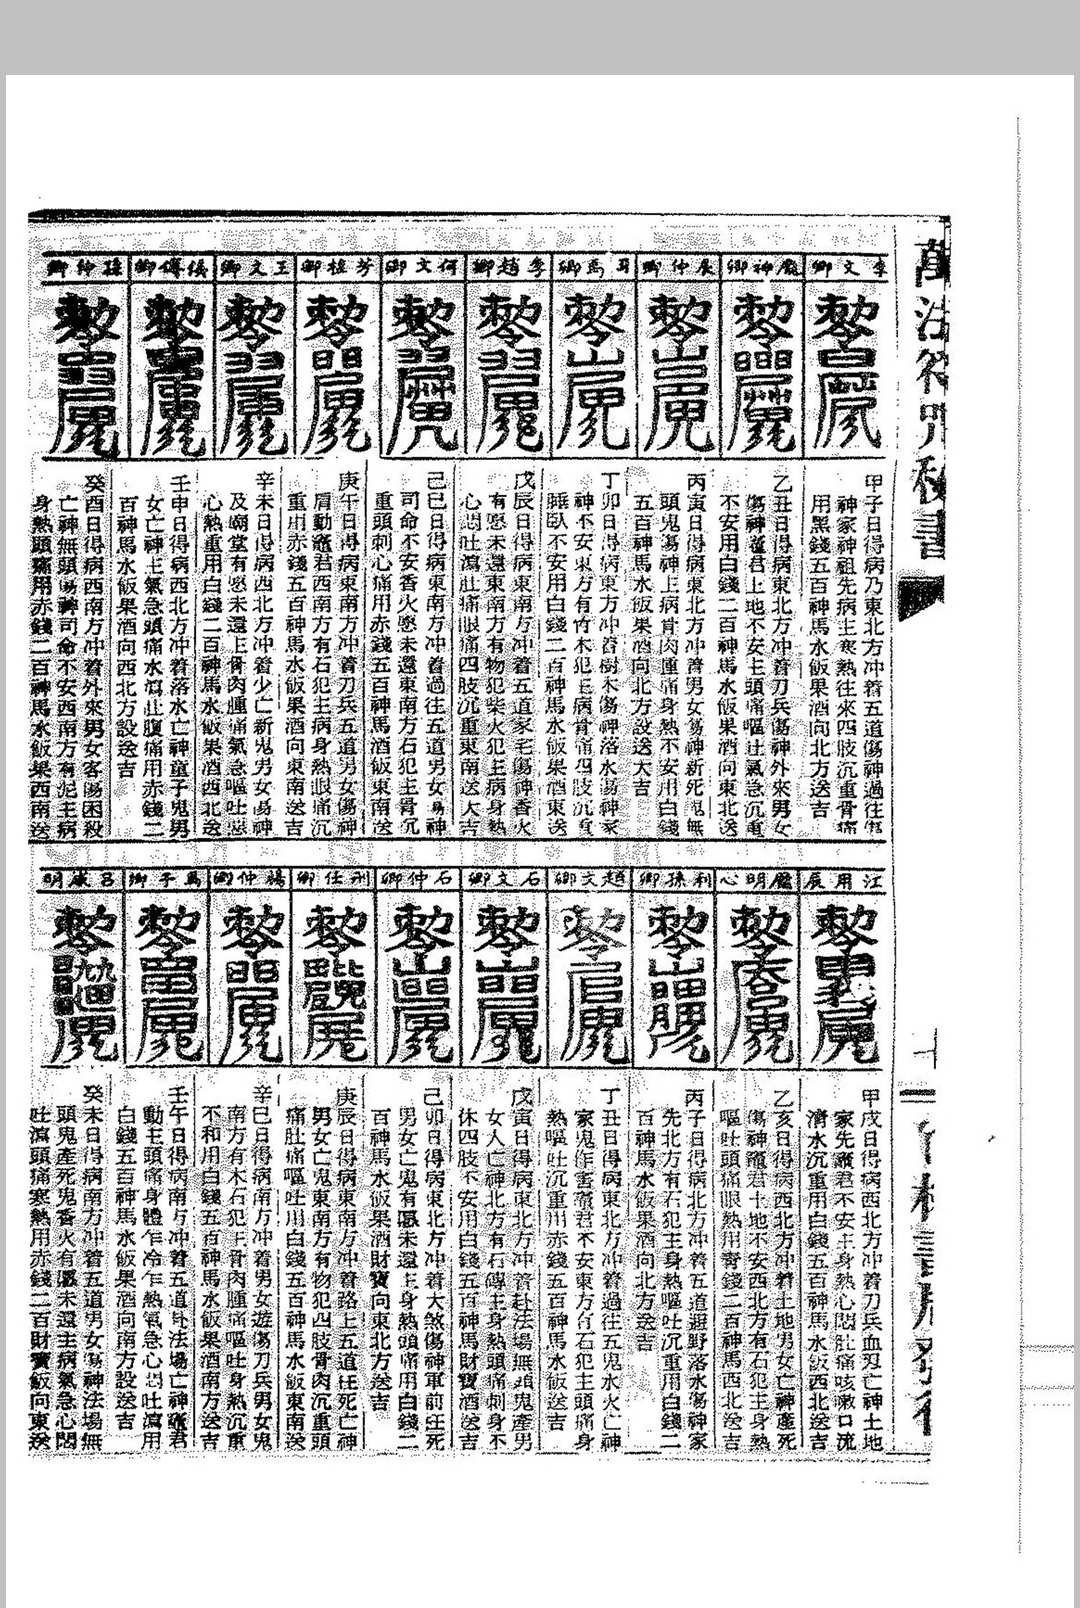 萬法符咒秘書
李文卿
龐神卿
展仲卿
司馬卿
李趙卿
何文卿
芳桂卿
王文卿
侯傅卿
孫仲卿
甲子日得病乃東北方冲着五道傷神過往
神家神祖先病主寒熱往來四肢沉重骨痛
用黑錢五百神馬水飯果酒向北方送吉
乙丑日得病東北方冲着刀兵傷神外來男女
傷神竈君土地不安主頭痛嘔吐氣急沉重
不安用白錢二百神馬水飯果酒向東北送
丙寅日得病東北方冲着男女傷神新死鬼無
頭鬼傷神上病骨肉腫痛身熱不安用白錢
五百神馬水飯果酒向北方設送大吉
丁卯日得病東方冲着樹木傷神落水傷神家
神不安東方有竹木犯主病骨痛四肢沉重
睡臥不安用白錢二百神馬水飯果酒東送
戊辰日得病東南方冲着五道家宅傷神香火
有愿未還東南方有物犯柴火犯主病身熱
心悶吐瀉肚痛眼痛四肢沉重東南送大吉
己巳日得病東南方冲着過往五道男女傷神
司命不安香火愿未還東南方石犯主骨沉
重頭刺心痛用赤錢五百神馬酒飯東南送
庚午日得病東南方冲着刀兵五道男女傷神
眉動竈君西南方有石犯主病身熱眼痛沉
重用赤錢五百神馬水飯果酒向東南送吉
辛未日得病西北方冲着少亡新鬼男女傷神
及廟堂有愿未還上骨肉腫痛氣急嘔吐惡
心熱重用白錢二百神馬水飯果酒西北送
壬申日得病西北方冲着落水亡神童子鬼男
女亡神主氣急頭痛水瀉肚腹痛用赤錢二
百神馬水飯果酒向西北方設送吉
癸酉日得病西南方冲着外來男女客傷困殺
亡神無頭傷神司命不安西南方有泥主病
身熱頭痛用赤錢二百神馬水飯果西南送
江用辰
龐明心
利孫卿
趙文卿
石文卿
石仲卿
刑任卿
楊仲卿
馬子卿
呂威明
甲戌日得病西北方冲着刀兵血刃亡神土地
家先竈君不安主身熱心悶肚痛咳嗽口流
清水沉重用白錢五百神馬水飯西北送吉
乙亥日得病西北方冲着土地男女亡神產死
傷神竈君土地不安西北方有石犯主身熱
嘔吐頭痛眼熱用青錢二百神馬西北送吉
丙子日得病北方冲着五道遊野落水傷神家
先北方有石犯主身熱嘔吐沉重用白錢二
百神馬水飯果酒向北方送吉
丁丑日得病東北方冲着過往五鬼水火亡神
家鬼作害竈君不安東方有石犯主頭痛身
熱嘔吐沉重用赤錢五百神馬水飯送吉
戊寅日得病東北方冲着赴法場無頭鬼產男
女人亡神北方有石磚主身熱頭痛刺身不
休四肢不安用白錢五百神馬財寶酒送吉
己卯日得病東北方冲着大煞傷神軍前陣死
男女亡鬼有愿未還主身熱頭痛用白錢二
百神馬水飯果酒財寶向東北方送吉
庚辰日得病東南方冲着路上五道枉死亡神
男女亡鬼東南方有物犯四肢骨肉沉重頭
痛肚痛嘔吐用白錢五百神馬水飯東南送
辛巳日得病南方冲着男女遊傷刀兵男女鬼
南方有木石犯主骨肉腫痛嘔吐身熱沉重
不和用白錢五百神馬水飯果酒南方送吉
壬午日得病南方冲着五道赴法場亡神竈君
動主頭痛身體乍冷乍熱氣急心悶吐瀉用
白錢五百神馬水飯果酒向南方設送吉
癸未日得病南方冲着五道男女傷神法場無
頭鬼產死鬼香火有愿未還主病氣急心悶
吐瀉頭痛寒熱用赤錢二百財寶飯向東送